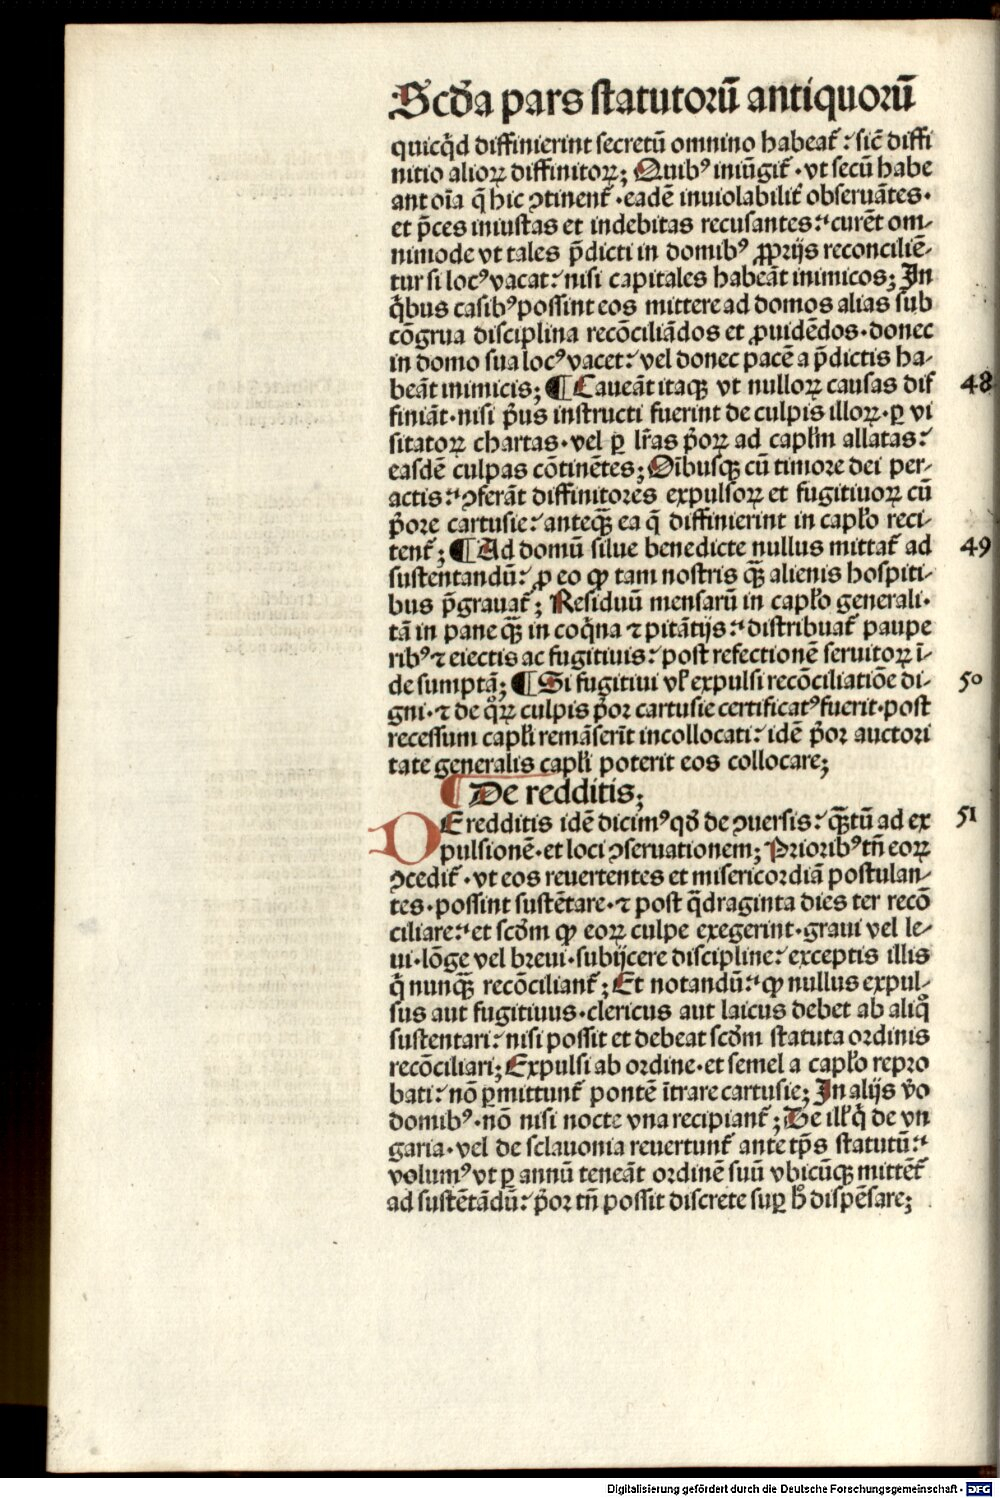 Scďa pars ſtatutoꝛū antiquoꝛū
quicq̄d diffinierint ſecretū omnino habeat᷑: ſic̄ diffi
nitio alioꝝ diffinitoꝝ; Quibꝰ iniūgit᷑ · vt ſecū habe
ant oīa q̄ hic ꝯtinent᷑ · eadē inuiolabilit᷑ obſeruātes ·
et p̄ces iniuſtas et indebitas recuſantes: curēt om-
nimode vt tales p̄dicti in domibꝰ ꝓpꝛijs reconciliē-
tur ſi locꝰ vacat: niſi capitales habeāt inimicos; In
q̄bus caſibꝰ poſſint eos mittere ad domos alias ſub
cōgrua diſciplina recōciliādos et ꝓuidēdos · donec
in domo ſua locꝰ vacet: vel donec pacē a p̄dictis ha-
beāt inimicis; ¶ Caueāt itaqꝫ vt nulloꝝ cauſas dif 48
finiāt · niſi p̄us inſtructi fuerint de culpis illoꝝ · ꝑ vi
ſitatoꝝ chartas · vel ꝑ lr̄as p̄oꝝ ad capl̄m allatas:
eaſdē culpas cōtinētes; Oībuſqꝫ cū timoꝛe dei per-
actis: ꝯferāt diffinitoꝛes expulſoꝝ et fugitiuoꝝ cū
p̄oꝛe cartuſie: anteqꝫ̄ ea q̄ diffinierint in capl̄o reci-
tent᷑; ¶ Ad domū ſilue benedicte nullus mittat᷑ ad 49
ſuſtentandū: ꝓ eo ꝙ tam noſtris qꝫ̄ alienis hoſpiti-
bus p̄grauat᷑; Reſiduū menſarū in capl̄o generali ·
tā in pane qꝫ̄ in coq̄na ⁊ pitātijs: diſtribuat᷑ paupe
ribꝰ ⁊ eiectis ac fugitiuis: poſt refectionē ſeruitoꝝ ī-
de ſumptā; ¶ Si fugitiui vl̓ expulſi recōciliatiōe di- 50
gni · ⁊ de qͦꝝ culpis p̄oꝛ cartuſie certificatꝰ fuerit · poſt
receſſum capl̓i remāſerīt incollocati: idē p̄oꝛ auctoꝛi
tate generalis capl̓i poterit eos collocare;
¶ De redditis;
DE redditis idē dicimꝰ qď de ꝯuerſis: qꝫ̄tū ad ex 51
pulſionē · et loci ꝯſeruationem; Pꝛioꝛibꝰ tn̄ eoꝝ
ꝯcedit᷑ · vt eos reuertentes et miſericoꝛdiā poſtulan-
tes · poſſint ſuſtētare · ⁊ poſt q̄draginta dies ter recō
ciliare: et ſcďm ꝙ eoꝝ culpe exegerint · graui vel le-
ui · lōge vel bꝛeui · ſubijcere diſcipline: exceptis illis
q̄ nunqꝫ̄ recōciliant᷑; Et notandū: ꝙ nullus expul-
ſus aut fugitiuus · clericus aut laicus debet ab aliq̊
ſuſtentari: niſi poſſit et debeat ſcďm ſtatuta oꝛdinis
recōciliari; Expulſi ab oꝛdine · et ſemel a capl̓o repꝛo
bati: nō ꝑmittunt᷑ pontē ītrare cartuſie; In alijs v̊o
domibꝰ · nō niſi nocte vna recipiant᷑; De ill̓ q̄ de vn
garia · vel de ſclauonia reuertunt᷑ ante tp̄s ſtatutū:
volumꝰ vt ꝑ annū teneāt oꝛdinē ſuū vbicūqꝫ mittēt᷑
ad ſuſtētādū: p̄oꝛ tn̄ poſſit diſcrete ſuꝑ h̓ diſpēſare;
Digitalisierung gefördert durch die Deutsche Forschungsgemeinschaft · DFG